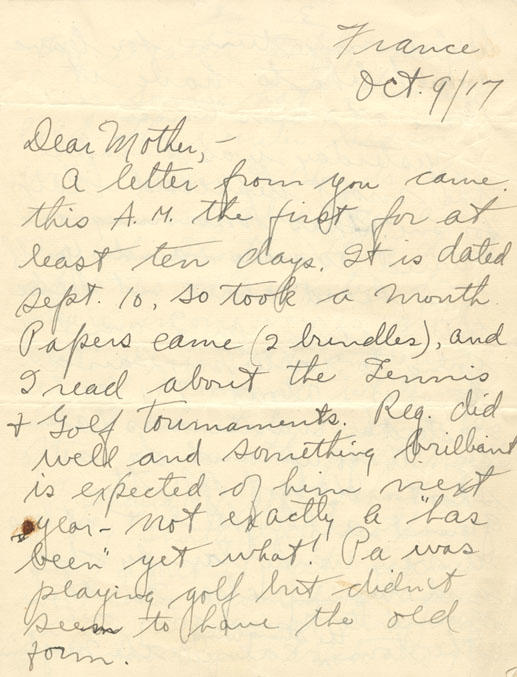 France
Oct. 9/17
Dear Mother,-
A letter from you came
this A.M. the first for at
least ten days. It is dated
Sept. 10, so took a month.
Papers came (2 bundles), and
I read about the Tennis
+ Golf tournaments. Reg. did
well and something brilliant
is expected of him next
year - not exactly a "has
been" yet what! Pa was
playing golf but didn't
seem to have the old
form.